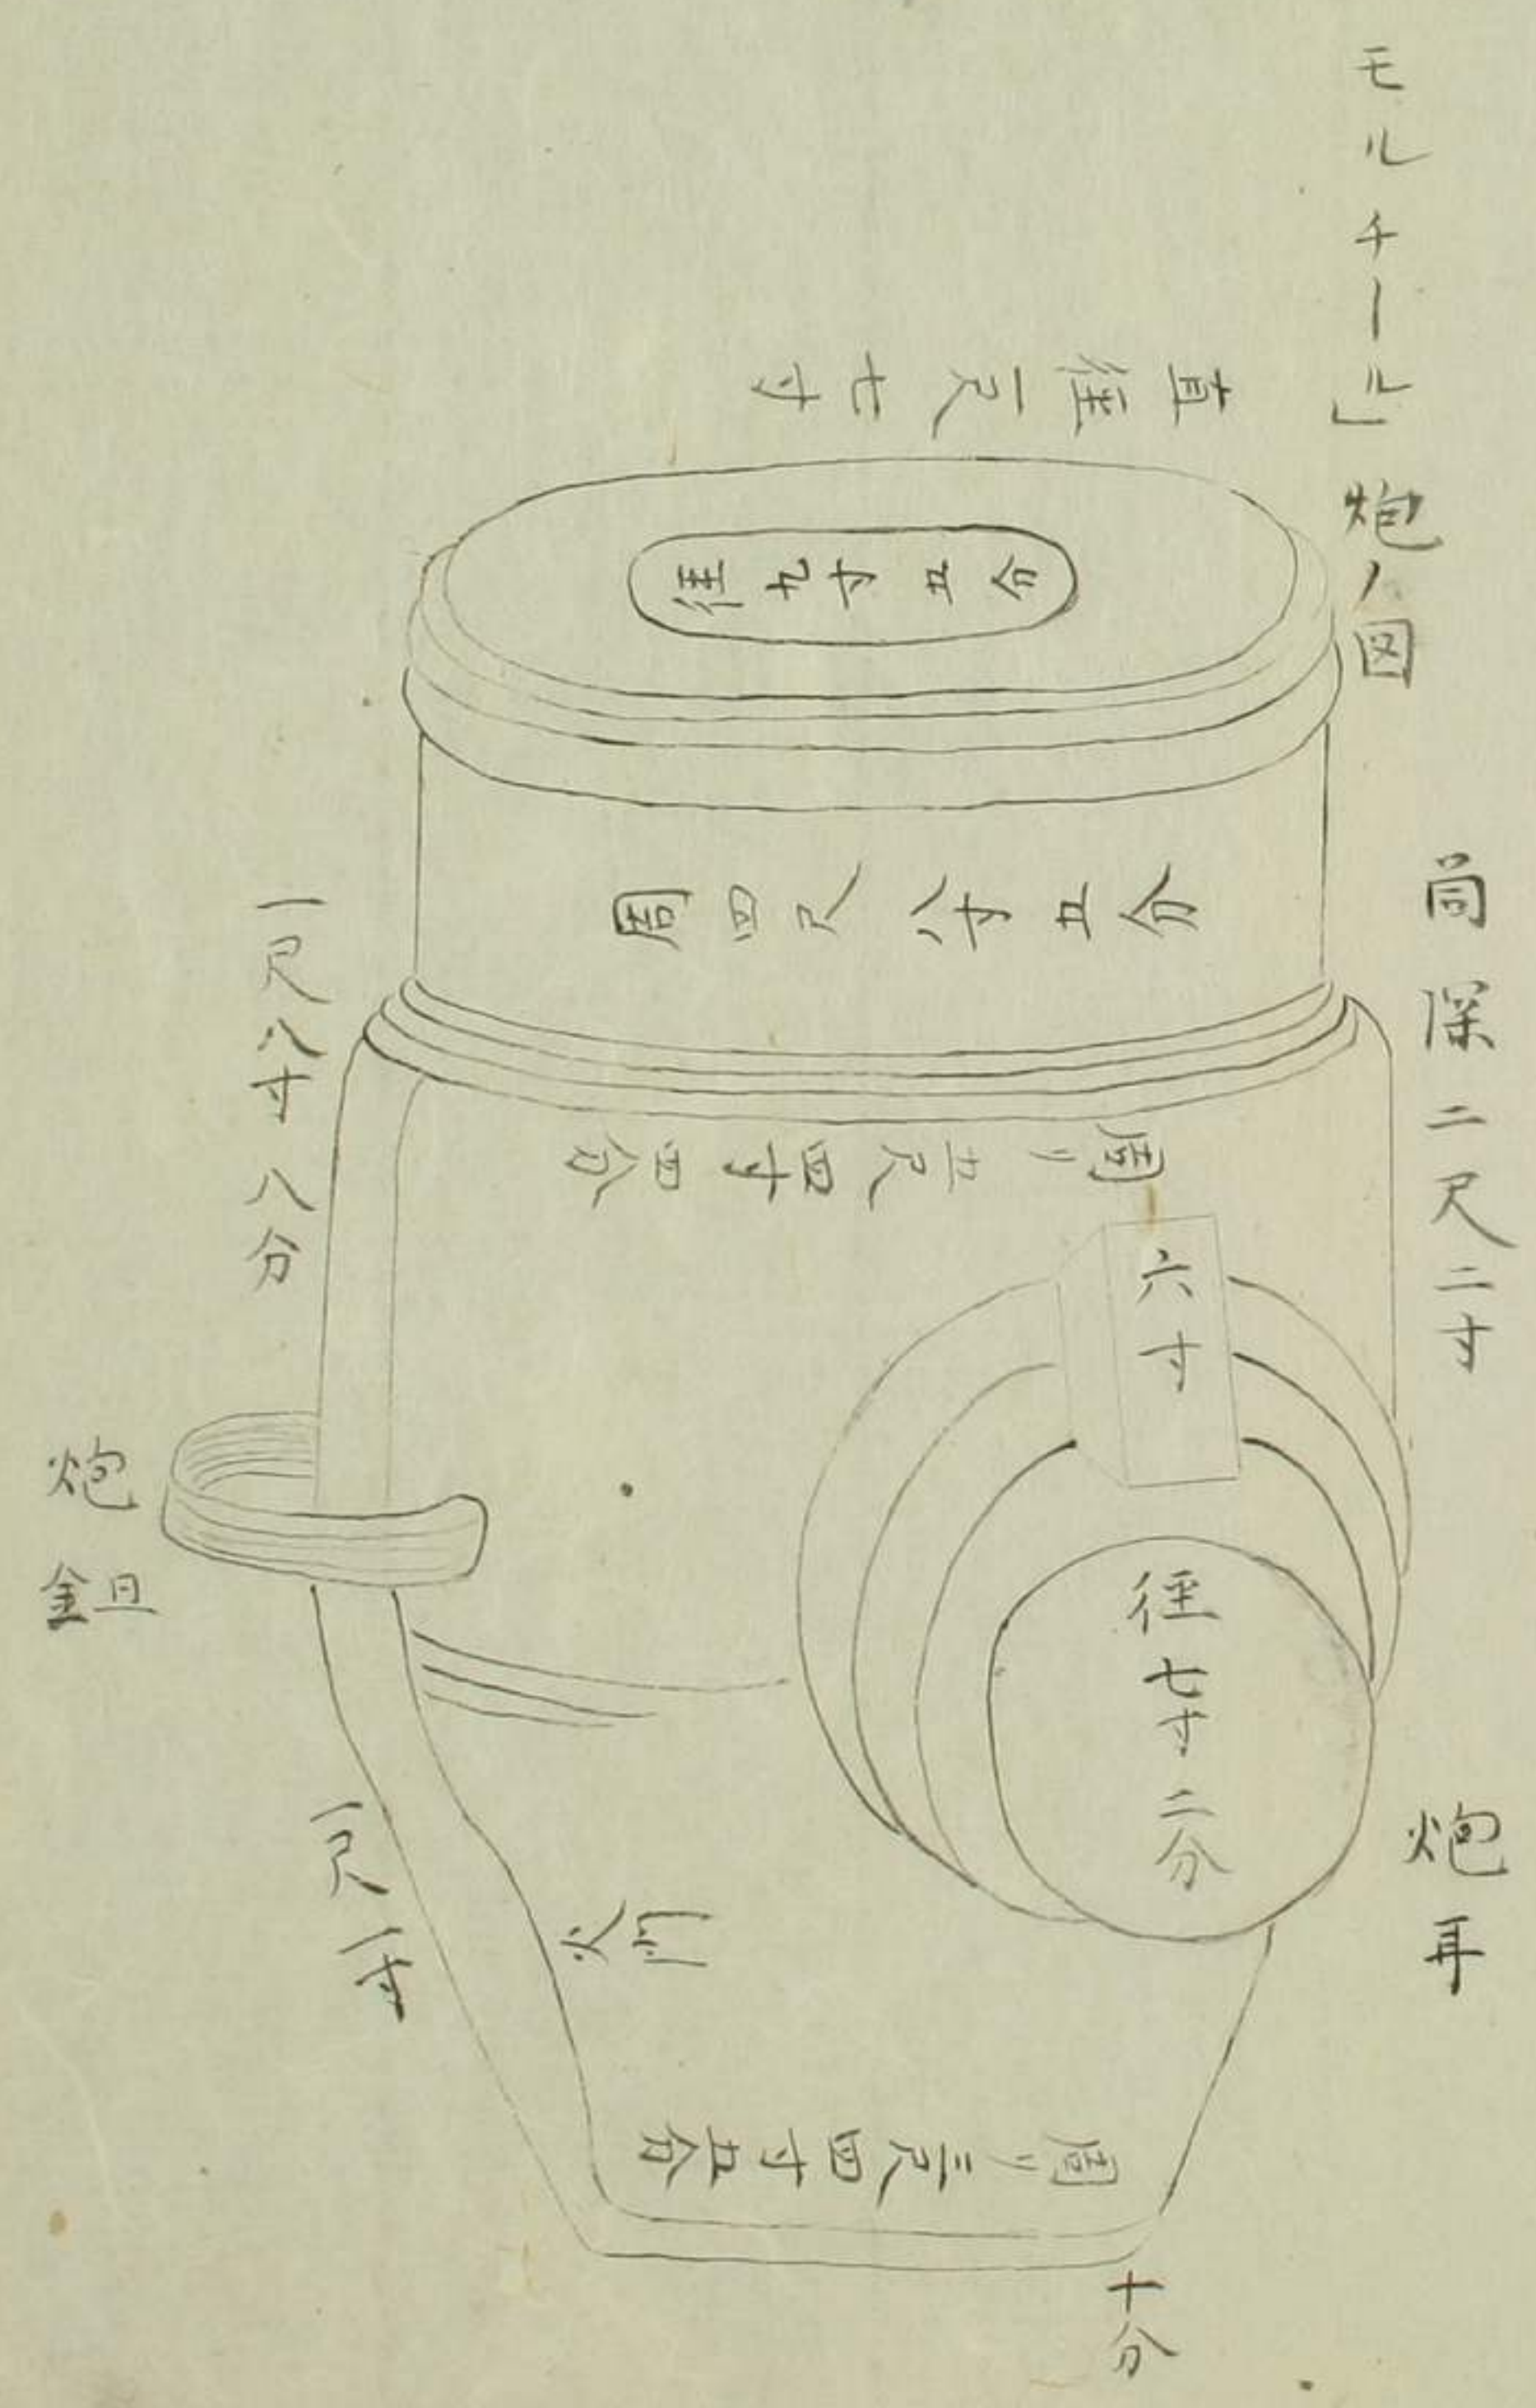 モルチール」炮ノ図
直径一尺七寸
径九寸五分
筒深二尺二寸
周四尺八寸五分
一尺八寸八分
周リ五尺四寸四分
六寸
炮鉏
径七寸二分
炮耳
一尺一寸
火門
周リ三尺四寸五分
十分